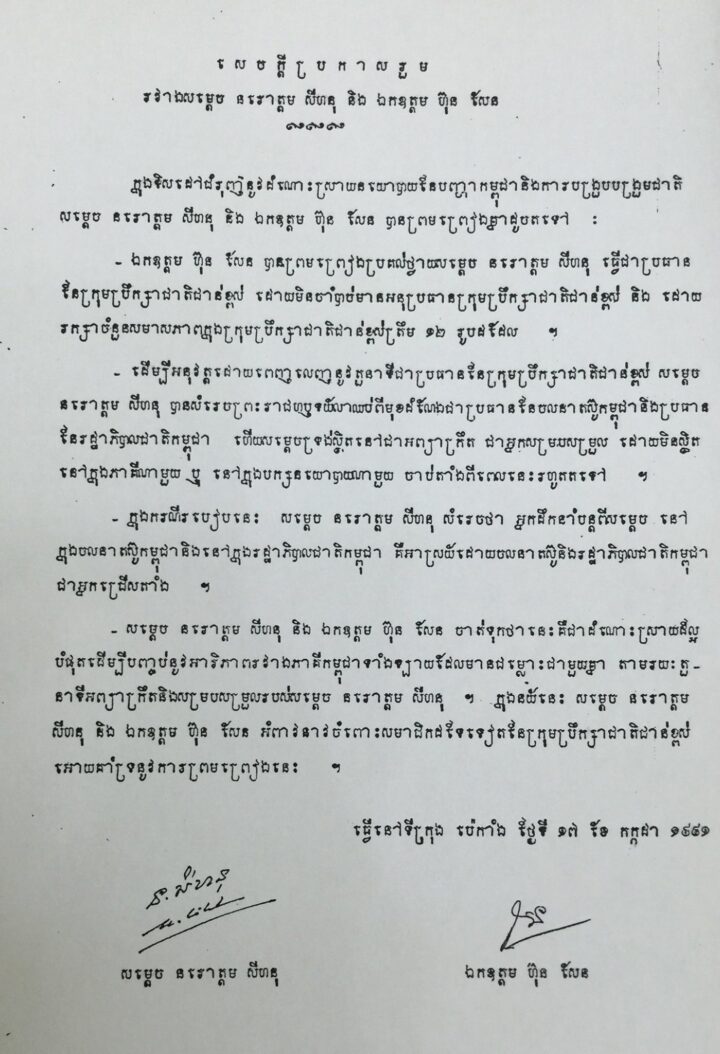 សេចក្តីប្រកាសរួម
រវាងសម្តេច នរោត្តម សីហនុ និង ឯកឧត្តម ហ៊ុន សែន
ក្នុងទិសដៅជំរុញនូវដំណោះស្រាយនយោបាយនៃបញ្ហាកម្ពុជានិងការបង្រួបបង្រួមជាតិ
សម្តេច នរោត្តម សីហនុ និង ឯកឧត្តម ហ៊ុន សែន បានព្រមព្រៀងគ្នាដូចតទៅ :
- ឯកឧត្តម ហ៊ុន សែន បានព្រមព្រៀងប្រគល់ថ្វាយសម្តេច នរោត្តម សីហនុ ធ្វើជាប្រធាន
នៃក្រុមប្រឹក្សាជាតិជាន់ខ្ពស់ ដោយមិនចាំបាច់មានអនុប្រធានក្រុមប្រឹក្សាជាតិជាន់ខ្ពស់ និង ដោយ
រក្សាចំនួនសមាសភាពក្នុងក្រុមប្រឹក្សាជាតិជាន់ខ្ពស់ត្រឹម ១២ រូបដដែល ។
- ដើម្បីអនុវត្តដោយពេញលេញនូវតួនាទីជាប្រធាននៃក្រុមប្រឹក្សាជាតិជាន់ខ្ពស់ សម្តេច
នរោត្តម សីហនុ បានសំរេចព្រះរាជហឫទ័យលាឈប់ពីមុខដំណែងជាប្រធាននៃចលនាតស៊ូកម្ពុជានិងប្រធាន
នៃរដ្ឋាភិបាលជាតិកម្ពុជា ហើយសម្តេចទ្រង់ស្ថិតនៅជាអព្យាក្រឹត ជាអ្នកសម្របសម្រួល ដោយមិនស្ថិត
នៅក្នុងភាគីណាមួយ ឬ នៅក្នុងបក្សនយោបាយណាមួយ ចាប់តាំងពីពេលនេះរហូតតទៅ ។
- ក្នុងករណីរបៀបនេះ សម្តេច នរោត្តម សីហនុ សំរេចថា អ្នកដឹកនាំបន្តពីសម្តេច នៅ
ក្នុងចលនាតស៊ូកម្ពុជានិងនៅក្នុងរដ្ឋាភិបាលជាតិកម្ពុជា គឺអាស្រ័យដោយចលនាតស៊ូនិងរដ្ឋាភិបាលជាតិកម្ពុជា
ជាអ្នកជ្រើសតាំង ។
- សម្តេច នរោត្តម សីហនុ និង ឯកឧត្តម ហ៊ុន សែន ចាត់ទុកថានេះគឺជាដំណោះស្រាយដ៏ល្អ
បំផុតដើម្បីបញ្ចប់នូវអរិភាពរវាងភាគីកម្ពុជាទាំងឡាយដែលមានជម្លោះជាមួយគ្នា តាមរយៈតួ-
នាទីអព្យាក្រឹតនិងសម្របសម្រួលរបស់សម្តេច នរោត្តម សីហនុ ។ ក្នុងន័យនេះ សម្តេច នរោត្តម
សីហនុ និង ឯកឧត្តម ហ៊ុន សែន អំពាវនាវចំពោះសមាជិកដទៃទៀតនៃក្រុមប្រឹក្សាជាតិជាន់ខ្ពស់
អោយគាំទ្រនូវការព្រមព្រៀងនេះ ។
ធ្វើនៅទីក្រុង ប៉េកាំង ថ្ងៃទី ១៧ ខែ កក្កដា ១៩៩១
ន. សីហនុ
សម្តេច នរោត្តម សីហនុ
ឯកឧត្តម ហ៊ុន សែន